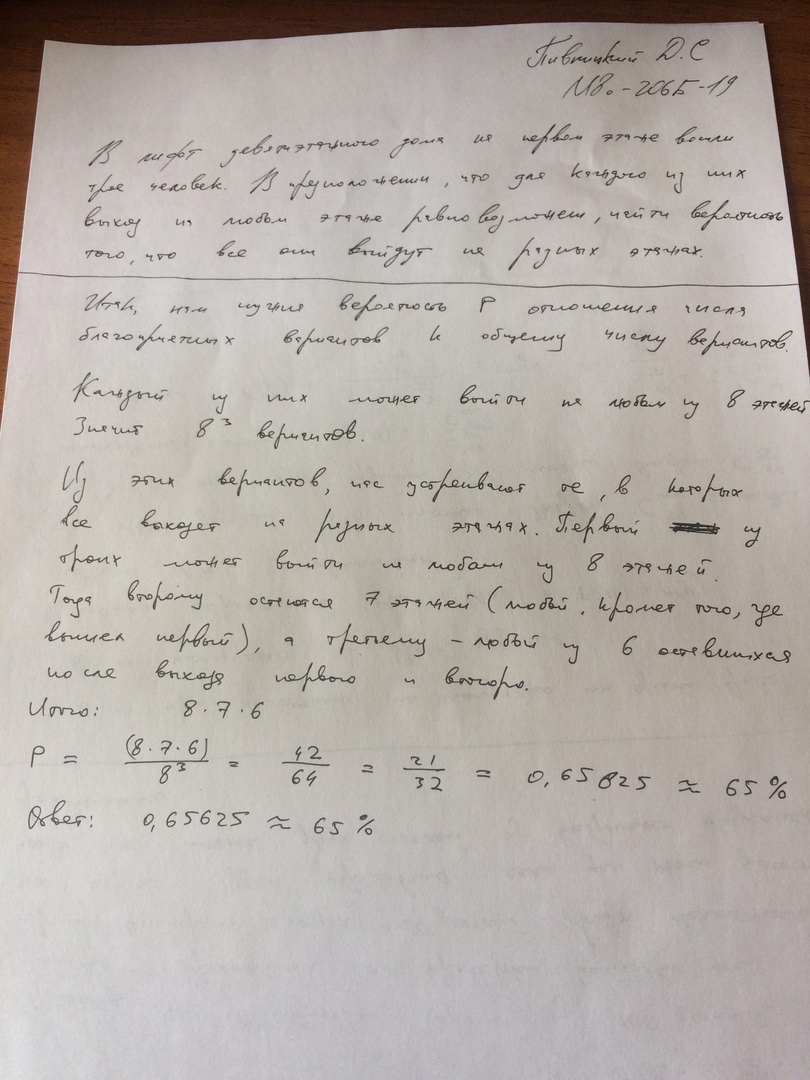 Пивницкий Д.С
М8о-206Б-19
В лифт девятиэтажного дома на первом этаже вошли
трое человек. В предположении, что для каждого из них
выход на любом этаже равновозможен, найти вероятность
того, что все они выйдут на разных этажах.
Итак, нам нужна вероятность P отношения числа
благоприятных вариантов к общему числу вариантов.
Каждый из них может выйти на любом из 8 этажей
Значит 8³ вариантов.
Из этих вариантов, нас устраивают те, в которых
все выходят на разных этажах. Первый из
троих может выйти на любом из 8 этажей.
Тогда второму остаются 7 этажей (любой, кроме того, где
вышел первый), а третьему – любый из 6 оставшихся
после выхода первого и второго.
Итого: 8 · 7 · 6
P = (8·7·6)/8³ = 42/64 = 21/32 = 0,65625 ≈ 65 %
Ответ: 0,65625 ≈ 65 %